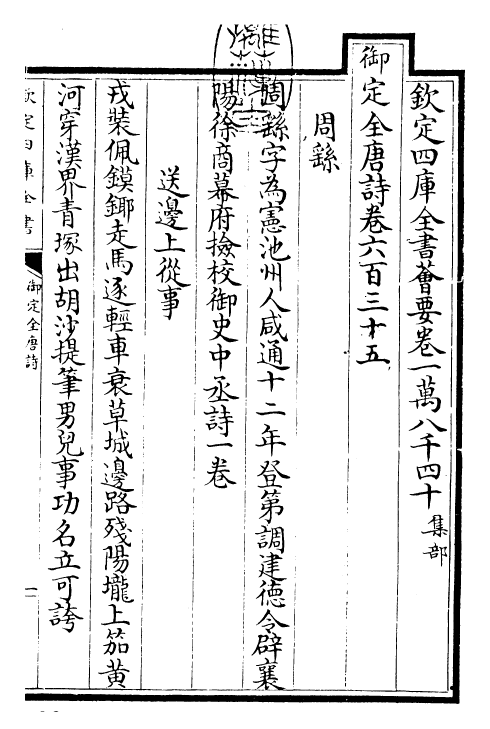 欽定四庫全書薈要卷一萬八千四十集部
御定全唐詩卷六百三十五
周繇
周繇字為憲池州人咸通十二年登第調建德令辟襄
陽徐商幕府檢校御史中丞詩一卷
送邊上從事
戎裝佩鏌鋣走馬逐輕車衰草城邊路殘陽壠上笳黃
河穿漢界青塚出胡沙提筆男兒事功名立可誇
欽定四庫全書
御定全唐詩
一